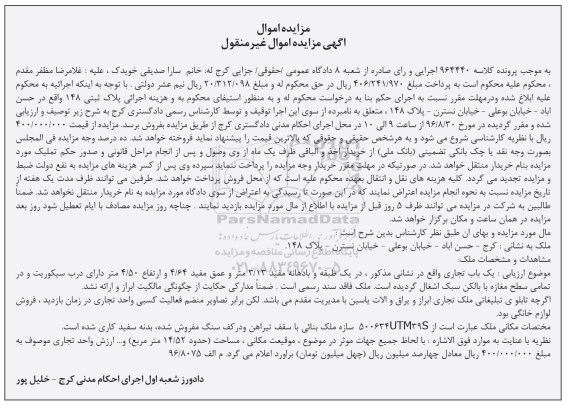 مزایده اموال
آگهی مزایده اموال غیر منقول
به موجب پرونده کلاسه ۹۶۴۴۴۰ اجرایی و رای صادره از شعبه ۸ دادگاه عمومی /حقوقی/ جزایی کرج له: خانم سارا صدیقی خویدک ، علیه : غلامرضا مظفر مقدم
، محکوم علیه محکوم است به پرداخت مبلغ ۴۰۶/۲۴۱/۹۷۰ ریال در حق محکوم له و مبلغ ۲۰/۳۱۲/۰۹۸ ریال نیم عشر دولتی . با توجه به اینکه اجرائیه به محکوم
علیه ابلاغ شده ودرمهلت مقرر نسبت به اجرای حکم بنا به درخواست محکوم له و به منظور استیفای محکوم به و هزینه اجرائی پلاک ثبتی ۱۴۸ واقع در حسن
اباد - خیابان بوعلی - خیابان نسترن - پلاک ۱۴۸ ، متعلق به نامبرده از سوی این اجرا توقیف و توسط کارشناس رسمی دادگستری کرج به شرح زیر توصیف و ارزیابی
شده و مقرر گردیده در مورخ ۹۶/۸/۳۰ از ساعت ۹ الی ۱۰ در محل اجرای احکام مدنی دادگستری کرج از طریق مزایده بفروش برسد. مزایده از قیمت ۴۰۰/۰۰۰/۰۰۰
ریال با نظریه کارشناسی شروع می شود و به هرشخص حقیقی و حقوقی که بالاترین قیمت را پیشنهاد نماید فروخته خواهد شد. ده درصد وجه مزایده فی المجلس
بصورت وجه نقد یا چک بانکی تضمینی (بانک ملی) از خریدار اخذ و الباقی ظرف یک ماه از وی وصول و پس از انجام مراحل قانونی و صدور حکم تملیک مورد
مزایده بنام خریدار منتقل خواهد شد. در صورتیکه در مهلت مقرر خریدار وجه مزایده را پرداخت ننماید سپرده وی پس از کسر هزینه های مزایده به نفع دولت ضبط
و مزایده تجدید می گردد. کلیه هزینه های نقل و انتقال بعهده محکوم علیه است که از محل فروش پرداخت خواهد شد. طرفین می توانند ظرف مدت یک هفته از
تاریخ مزایده نسبت به نحوه انجام مزایده اعتراض نمایند که در این صورت تا رسیدگی به اعتراض از سوی دادگاه مورد مزایده به نام خریدار منتقل نخواهد شد. ضمناً
طالبین به شرکت در مزایده می توانند ظرف ۵ روز قبل از مزایده با اطلاع از مال مورد مزایده بازدید نمایند . چناچه روز مزایده مصادف با ایام تعطیل شود روز بعد
مزایده در همان ساعت و مکان برگزار خواهد شد.
مال مورد مزایده و بهای ان طبق نظر کارشناس بدین شرح است :
ملک به نشانی : کرج - حسن اباد - خیابان بوعلی - خیابان نسترن - پلاک ۱۴۸.
مشاهدات و مشخصات ملک:
موضوع ارزیابی : یک باب تجاری واقع در نشانی مذکور ، در یک طبقه و بادهانه مفید ۳/۱۳ متر و عمق مفید ۴/۶۴ و ارتفاع ۴/۵۰ متر دارای درب سیکوریت و در
تمامی سطح مغازه با بالکن سبک اشغال گردیده است. ملک فاقد سند رسمی است . ضمناً مدارکی حکایت از چگونگی مالکیت ابراز و ارائه نشد.
اگرچه تابلو ی تبلیغاتی ملک تجاری ابراز و یراق و الات یاسین با مدیریت مقدم می باشد. لکن برابر تصاویر منضم فعالیت کسبی واحد تجاری در زمان بازدید ، فروش
لوازم خانگی بود.
مختصات مکانی ملک عبارت است از 39S UTM ۵۰۰۶۳۴ سازه ملک بنائی با سقف تیراهن ودرکف سنگ مفروش شده، بدنه سفید کاری شده است.
نظریه با عنایت به موارد فوق الاشاره : با لحاظ جمیع جهات موثر در موضوع ، موقیعت مکانی ، مساحت (حدود ۱۴/۵۲ متر مربع) و... ارزش واحد تجاری موصوف به
مبلغ ۴۰۰/۰۰۰/۰۰۰ ریال معادل چهارصد میلیون ریال (چهل میلیون تومان) براورد اعلام می گردد. م الف ۹۶/۸۰۷۵
دادورز شعبه اول اجرای احکام مدنی کرج - خلیل پور
ParsNamadData
پایگاه اطلاع رسانی مناقصه و مزایده